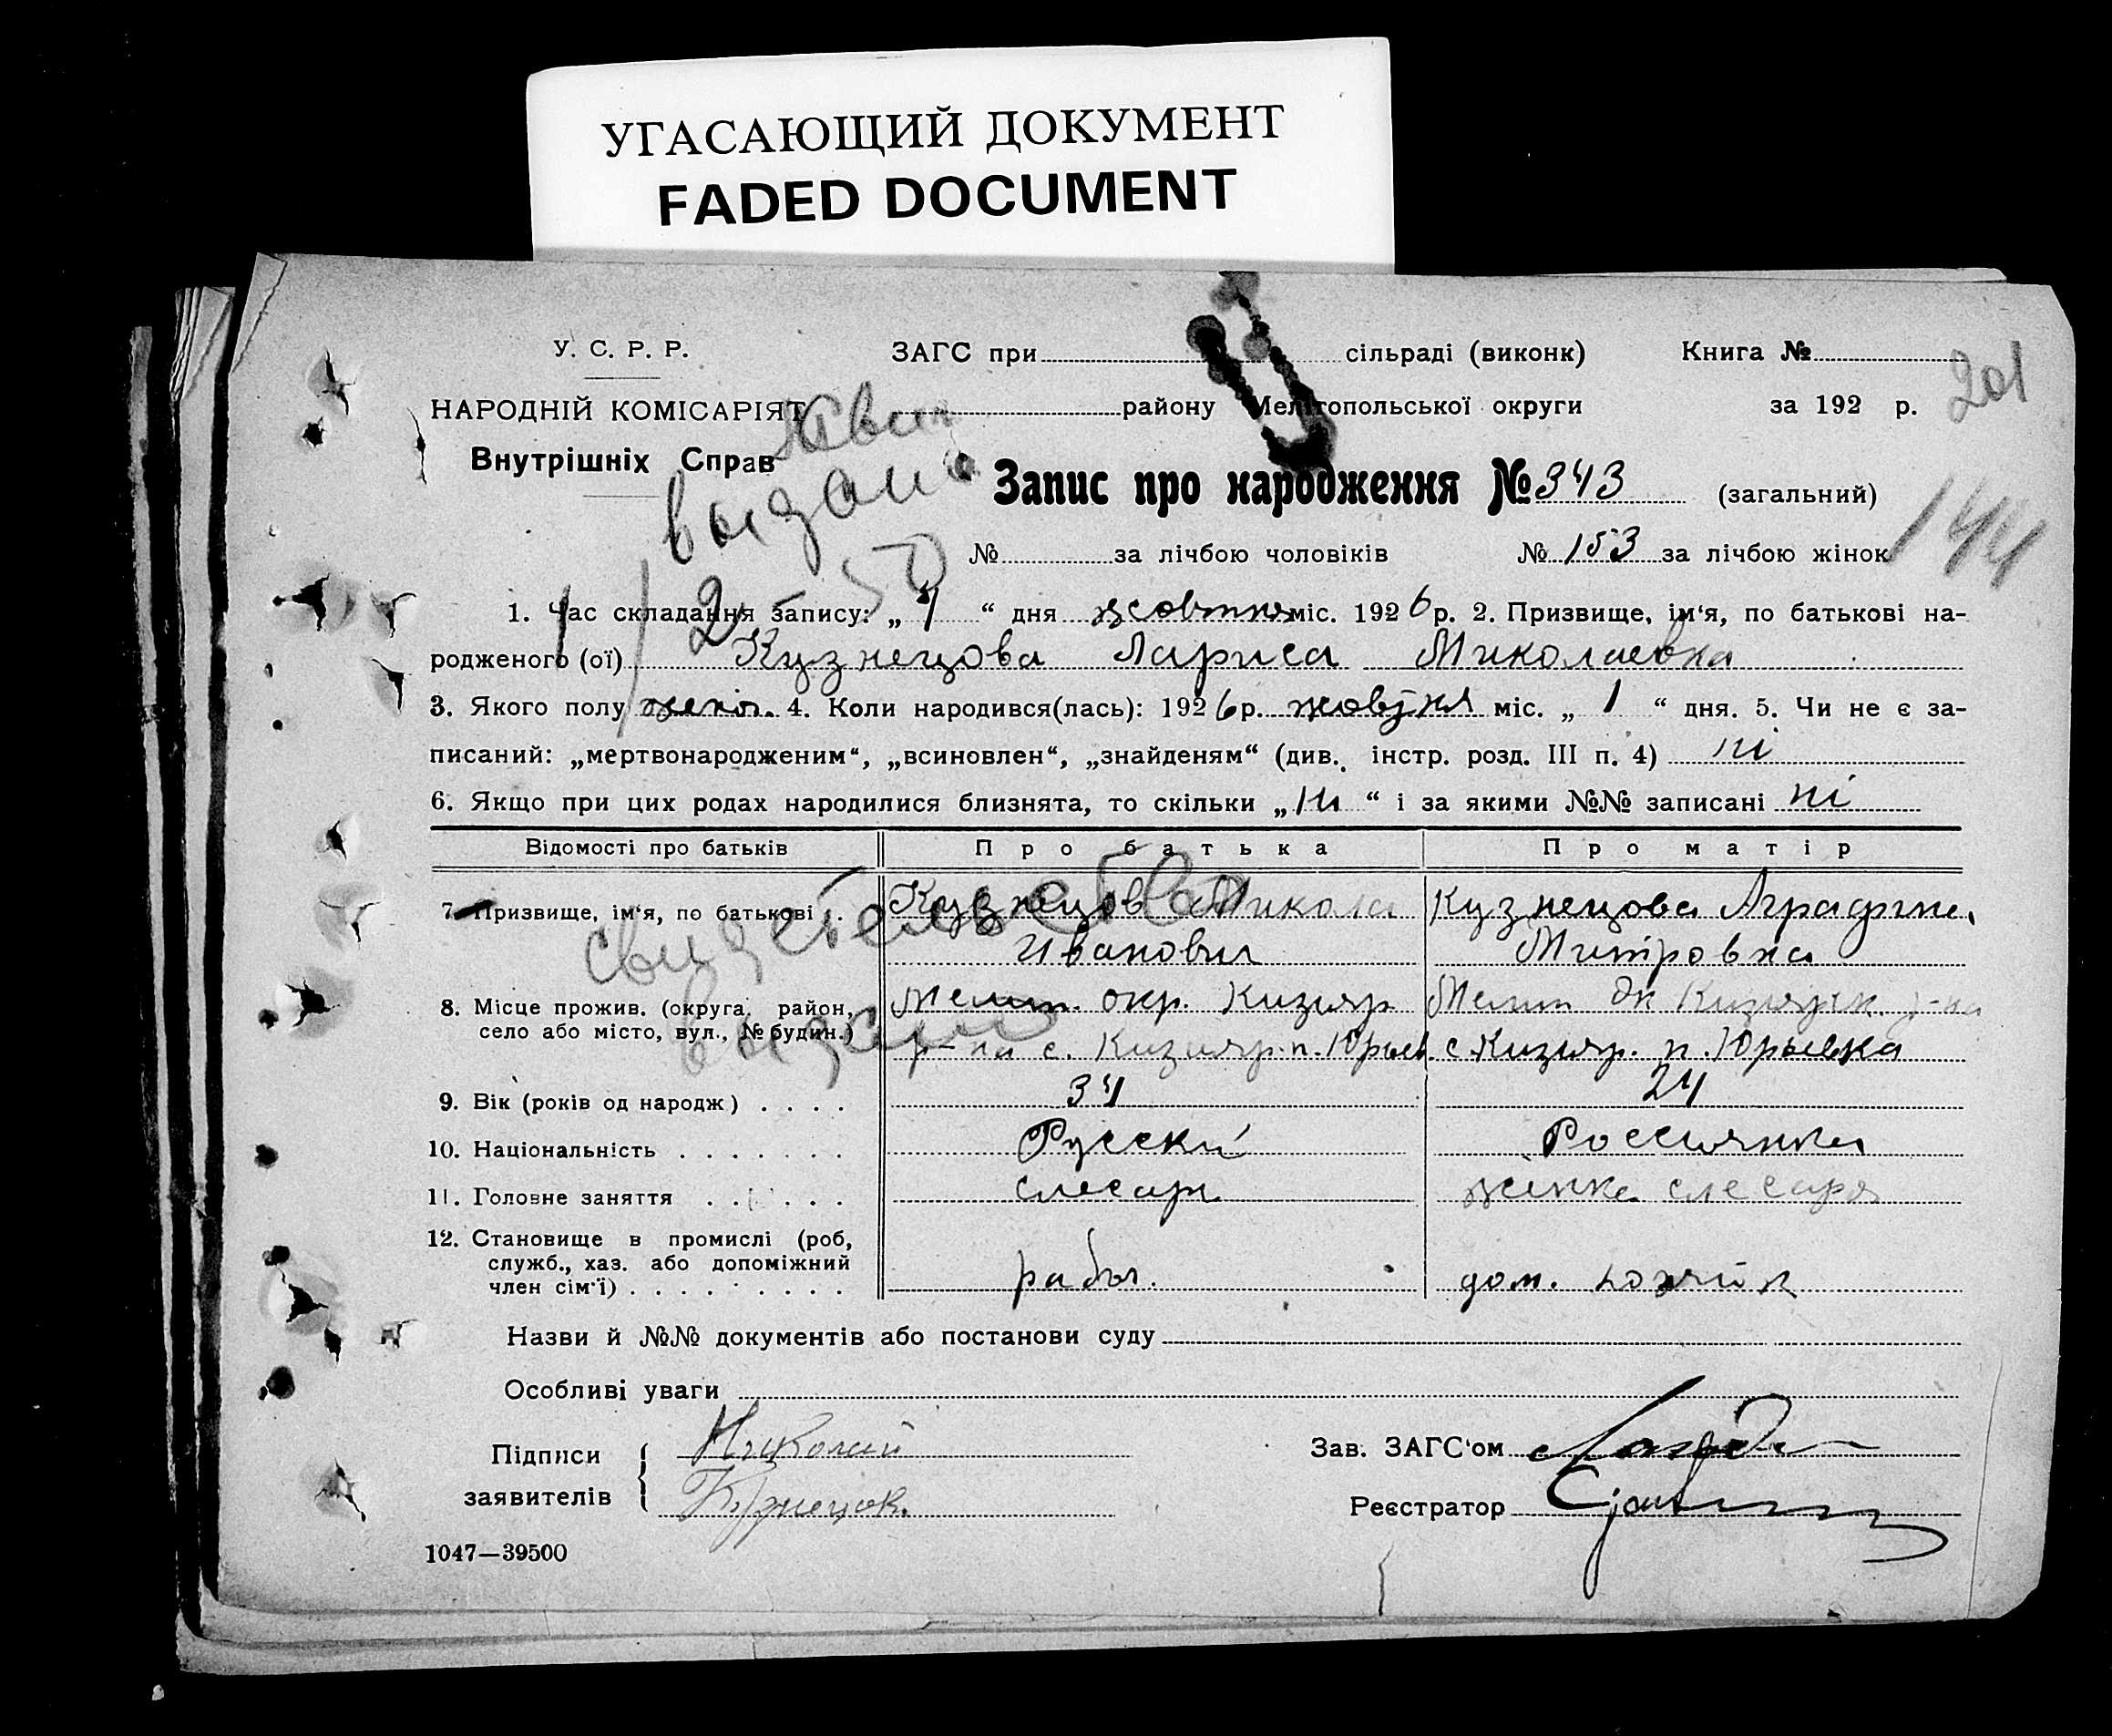 УГАСАЮЩИЙ ДОКУМЕНТ
FADED DOCUMENT
У. С. Р. Р.
ЗАГС при сільраді (виконк) Книга №
201
НАРОДНІЙ КОМІСАРІЯТ
району Мелітопольської округи за 192 р.
Внутрішніх Справ
выдано
Запис про народження № 343 (загальний)
144
№ за лічбою чоловіків № 153 за лічбою жінок
1. Час складання запису: „ 4 “ дня жовтня міс. 1926 р. 2. Призвище, ім'я, по батькові на-
родженого (ої) Кузнецова Лариса Миколаевна
3. Якого полу жіноч. 4. Коли народився(лась): 1926 р. жовтня міс. „ 1 “ дня. 5. Чи не є за-
писаний: „мертвонародженим“, „всиновлен“, „знайденям“ (див. інстр. розд. III п. 4) ні
6. Якщо при цих родах народилися близнята, то скільки „ ні “ і за якими №№ записані ні
Відомості про батьків Про батька Про матір
7. Призвище, ім'я, по батькові . Кузнецов Микола Кузнецова Аграфина
свидетельство
Иванович Митровна
8. Місце прожив. (округа, район, Мелит. окр. Кизияр Мелит ок Кизиярск. р-на
село або місто, вул., № будин.) р-на с. Кизияр. п. Юрьев. с. Кизияр. п. Юрьевка
выдано
9. Вік (років од народж) . . . . 34 24
10. Національність . . . . . . . Русский Россиянка
11. Головне заняття . . . . . слесарь жінка слесаря
12. Становище в промислі (роб,
служб., хаз. або допоміжний
член сім'ї) . . . . . . . . . рабоч. дом.
Назви й №№ документів або постанови суду
Особливі уваги
Підписи Николай Зав. ЗАГС'ом
заявителів Кузнецов. Реєстратор
1047—39500